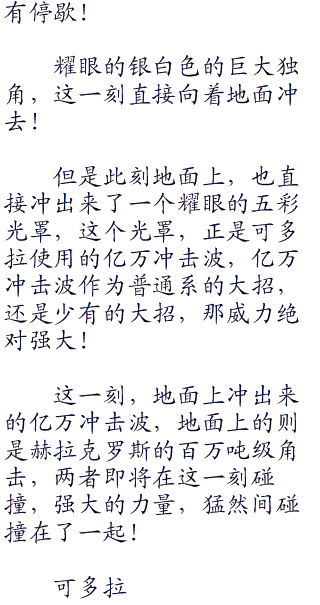 有停歇！
耀眼的银白色的巨大独
角，这一刻直接向着地面冲
去！
但是此刻地面上，也直
接冲出来了一个耀眼的五彩
光罩，这个光罩，正是可多
拉使用的亿万冲击波，亿万
冲击波作为普通系的大招，
还是少有的大招，那威力绝
对强大！
这一刻，地面上冲出来
的亿万冲击波，地面上的则
是赫拉克罗斯的百万吨级角
击，两者即将在这一刻碰
撞，强大的力量，猛然间碰
撞在了一起！
可多拉